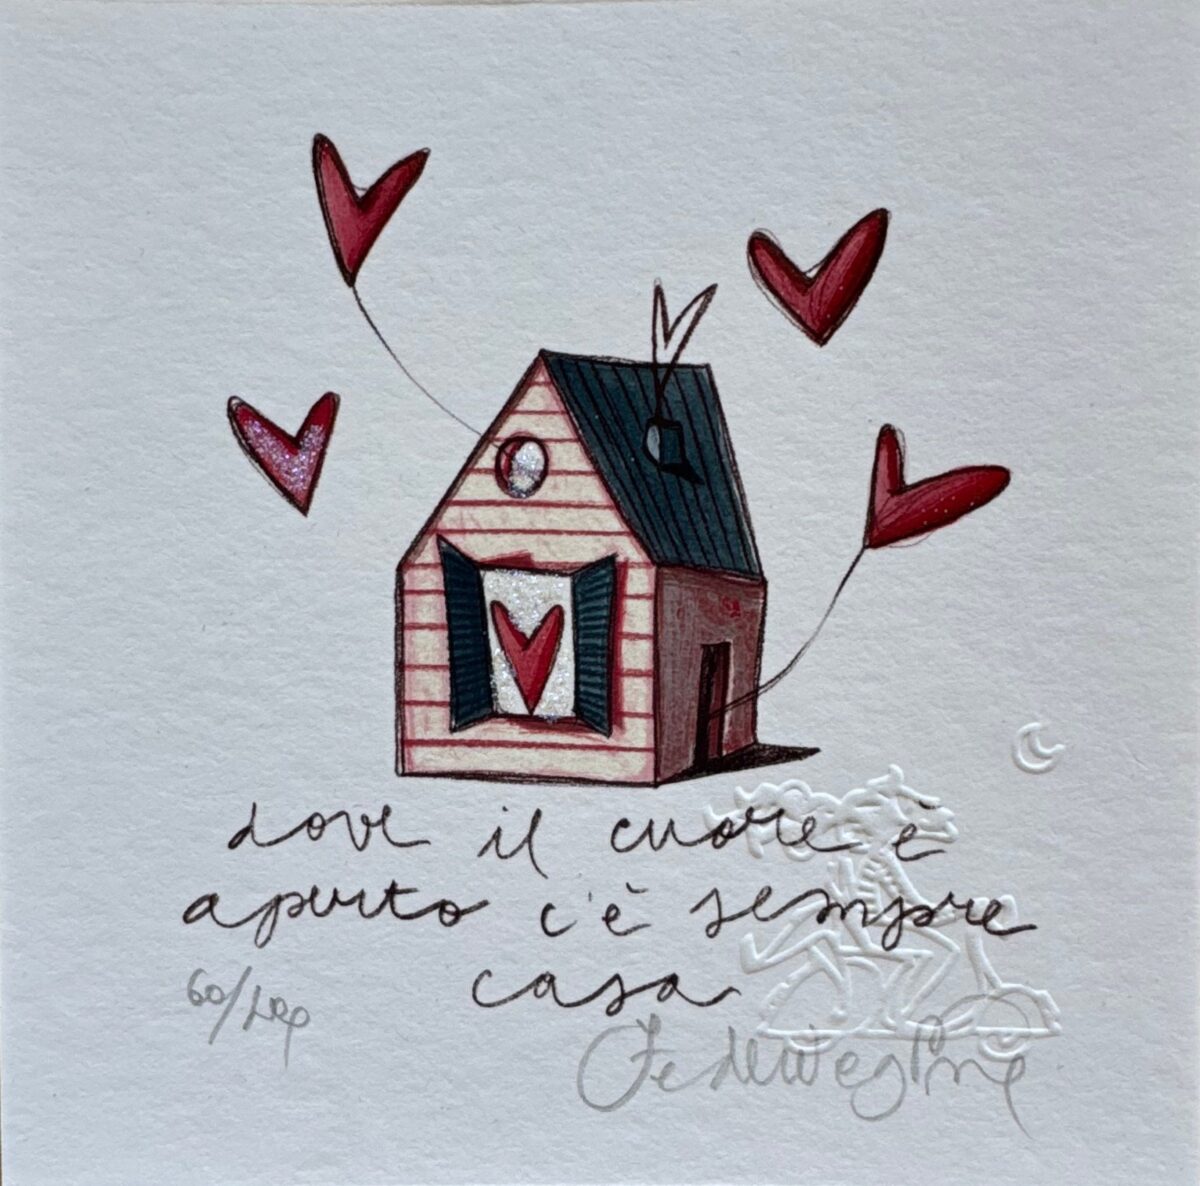 dove il cuore è
aperto c'è sempre
casa
60/100